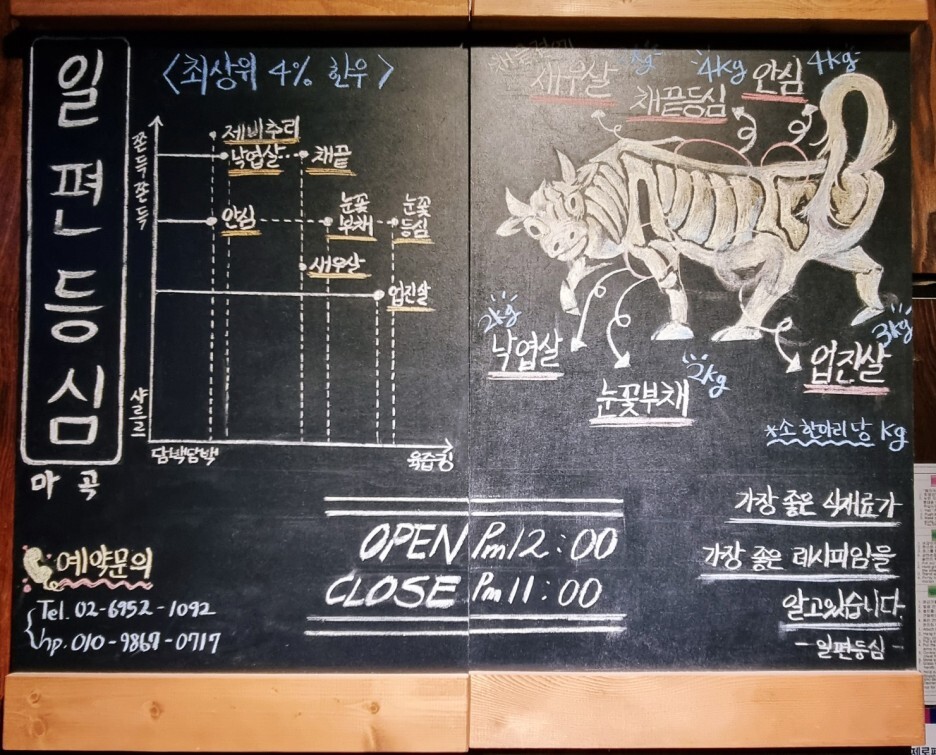 일편등심
마곡
<최상위 4% 한우>
쫀득쫀득
제비추리
낙엽살
채끝
안심
눈꽃
부채
눈꽃
등심
새우살
업진살
샤르르
담백담백
육즙킹
새우살
채끝등심
4kg
안심
4kg
2kg
낙엽살
눈꽃부채
2kg
업진살
3kg
*소 한마리당 kg
예약문의
Tel. 02-6952-1092
hp. 010-9867-0717
OPEN Pm 12:00
CLOSE Pm 11:00
가장 좋은 식재료가
가장 좋은 레시피임을
알고있습니다.
-일편등심-